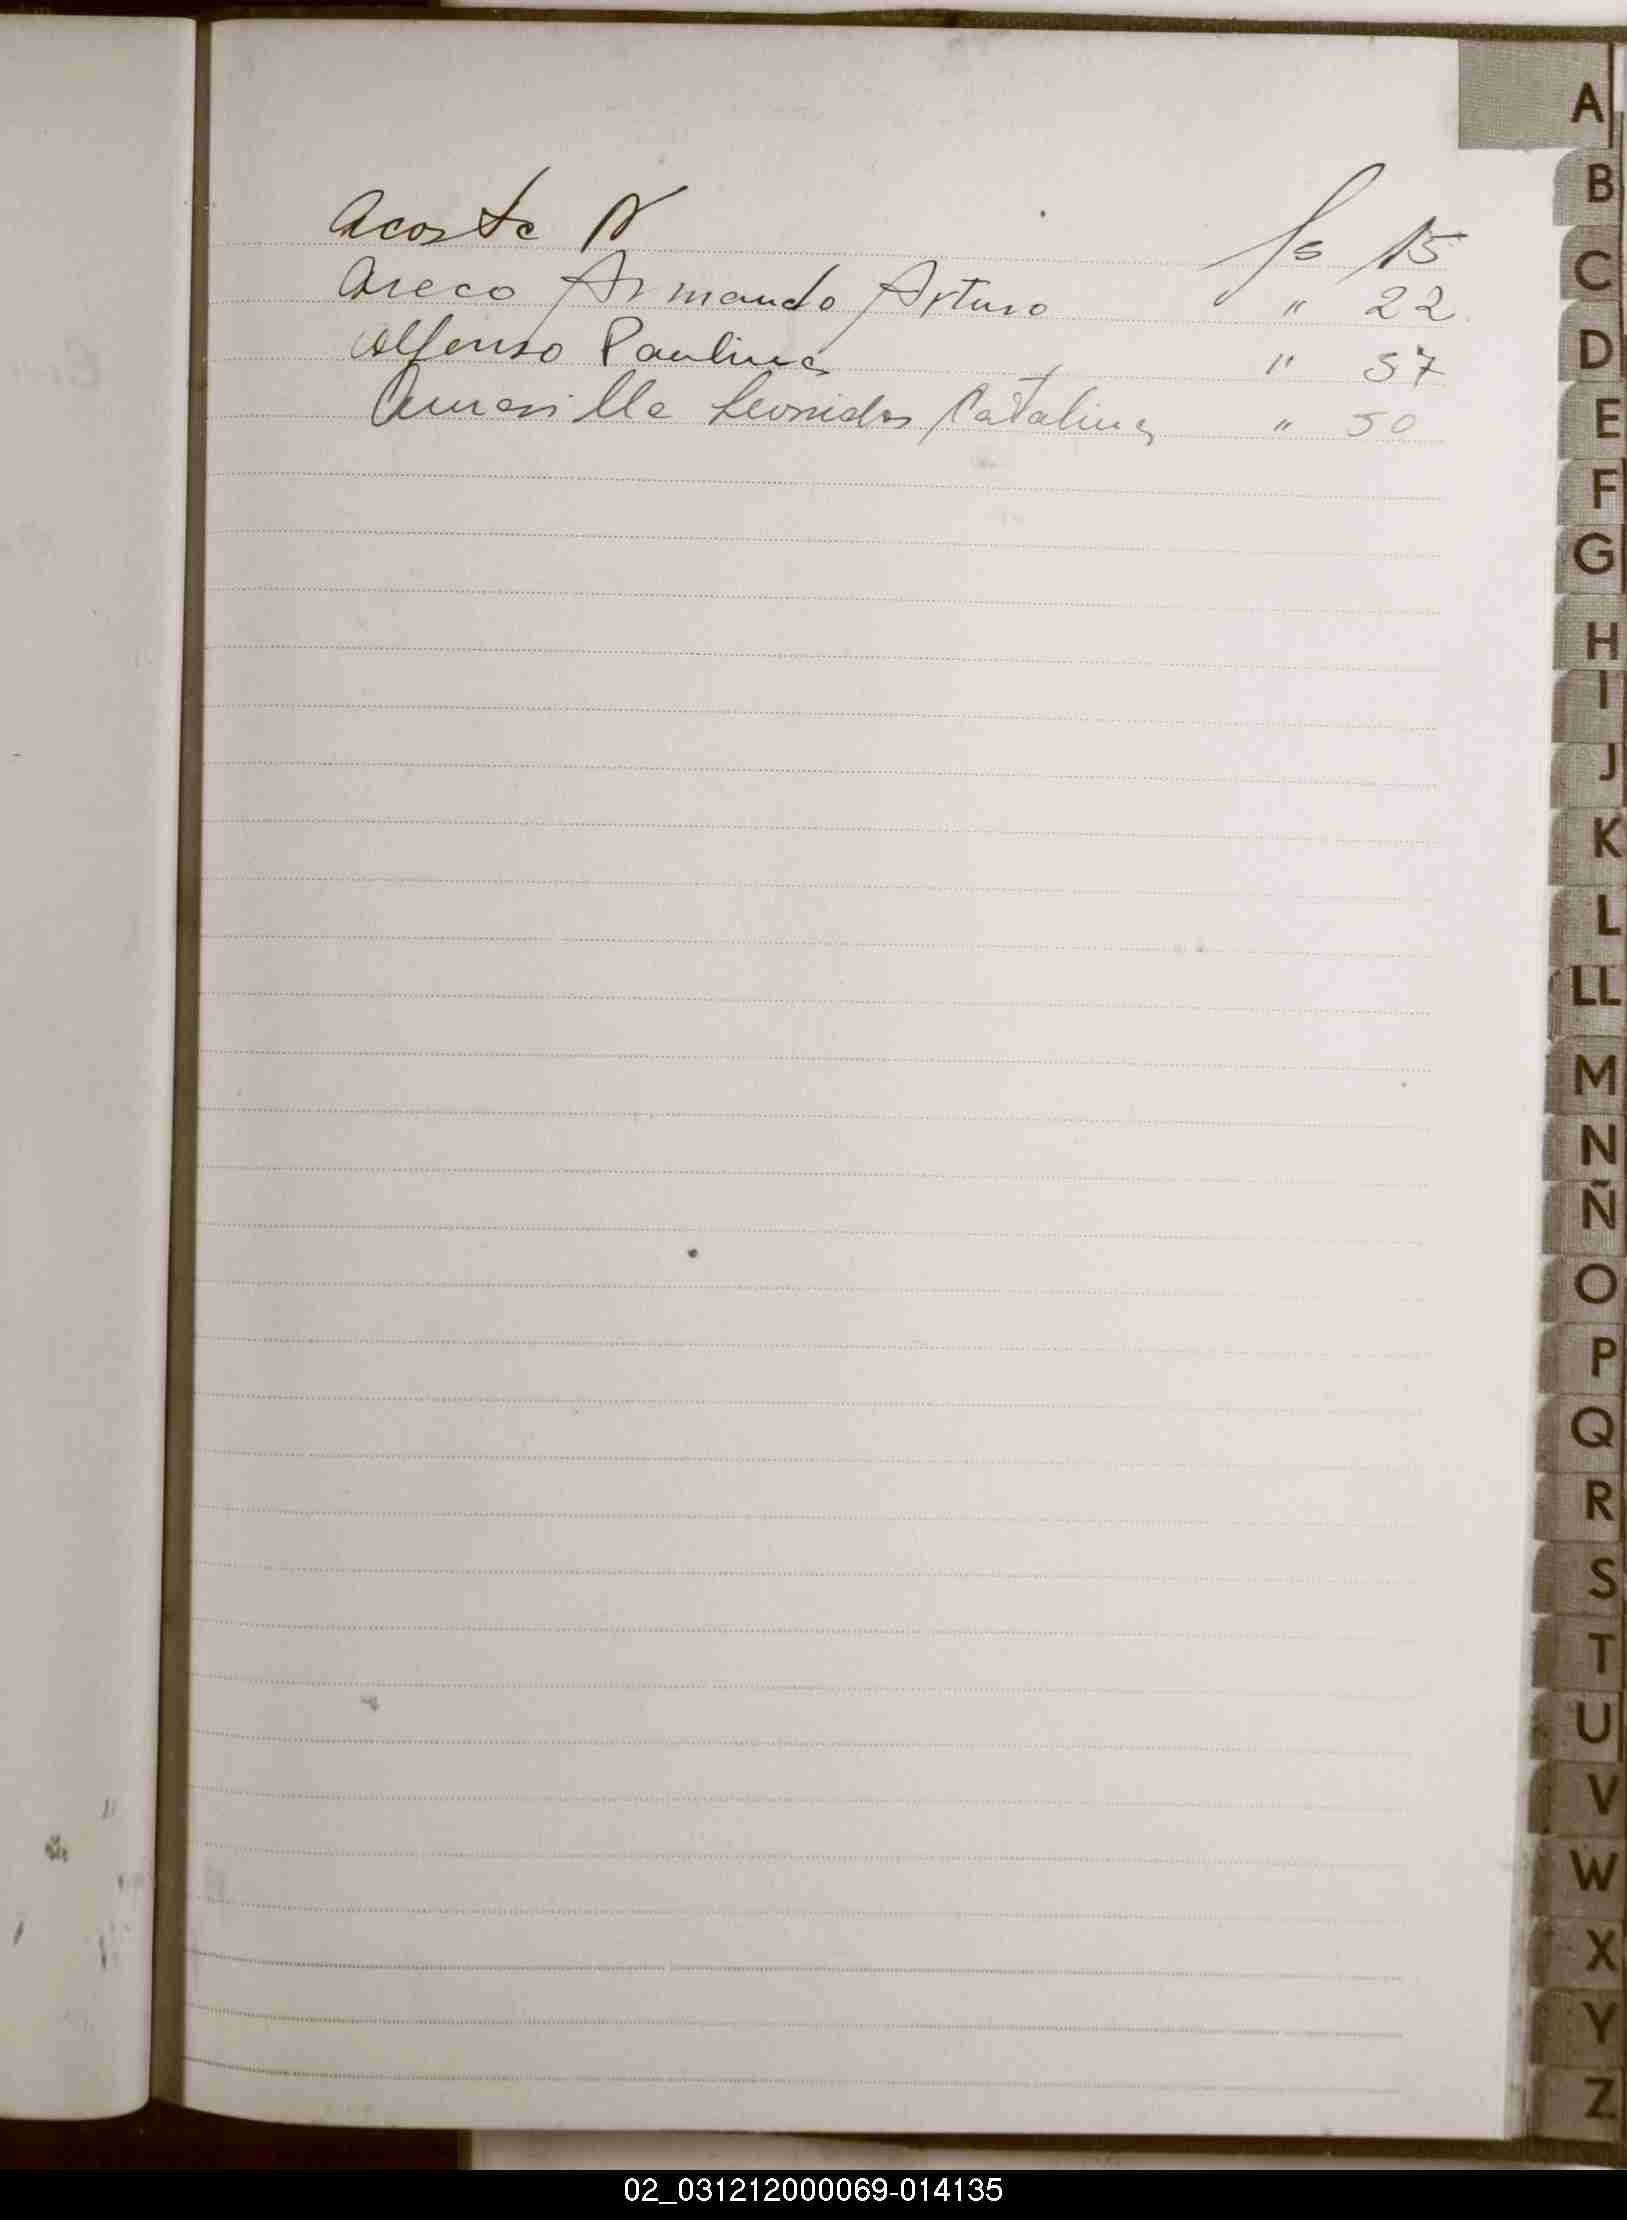 Acosta N fs 15
Areco Armando Arturo " 22
Alfonso Paulina " 37
Amarilla Leonidas Catalina " 50
A
B
C
D
E
F
G
H
I
J
K
L
LL
M
N
Ñ
O
P
Q
R
S
T
U
V
W
X
Y
Z
02_031212000069-014135